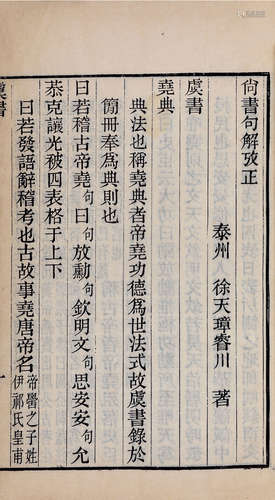 尙書句解攷正
泰州 徐天璋睿川 著
虞書
堯典
典法也稱堯典者帝堯功德爲世法式故虞書錄於
簡冊奉爲典則也
曰若稽古帝堯句曰句放勳句欽明文句思安安句允
恭克讓光被四表格于上下
曰若發語辭稽考也古故事堯唐帝名帝嚳之子姓
伊祁氏皇甫